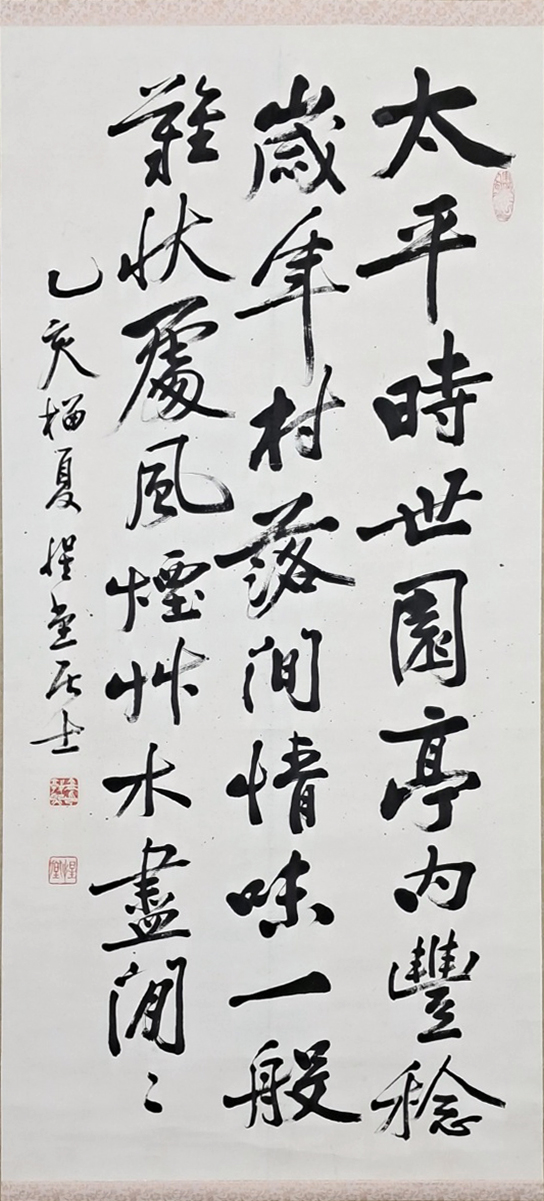 太平時世園亭內豐稔
歲年村落間情味一般
難狀處風煙艸木盡閒〻
乙亥榴夏惺堂居士